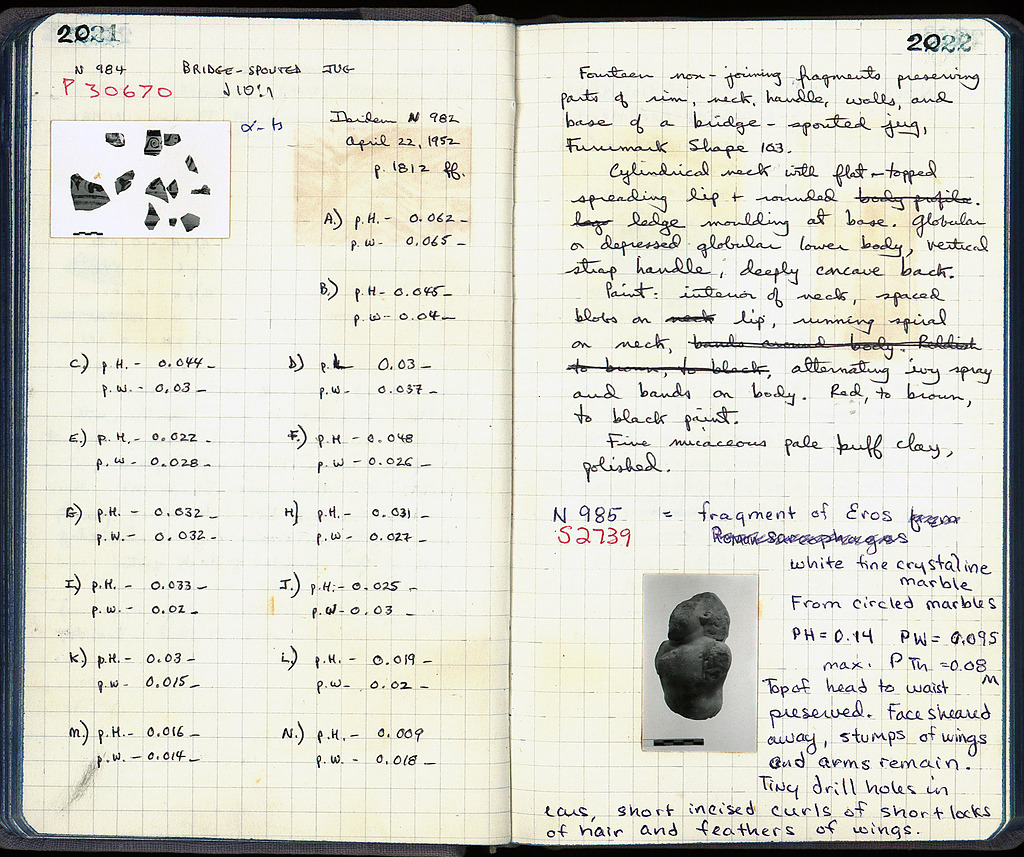 2021
N 984 BRIDGE-SPOUTED JUG
P 30670 J 10:1
α-ν
Ibidem N 982
April 22, 1952
p. 1812 ff.
A.) p.H. - 0.062 -
p.w - 0.065 -
B.) p.H - 0.045 -
p.w - 0.04 -
C.) p.H. - 0.044 -
p.w. - 0.03 -
D) p.L 0.03 -
p.w - 0.037 -
E.) p.H. - 0.022 -
p.w - 0.028 -
F.) p.H - 0.048
p.w - 0.026 -
G) p.H. - 0.032 -
p.w. - 0.032 -
H) p.H. - 0.031 -
p.w - 0.027 -
I.) p.H. - 0.033 -
p.w. - 0.02 -
J.) p.H. - 0.025 -
p.w - 0.03 -
K.) p.H. - 0.03 -
p.w - 0.015 -
L) p.H. - 0.019 -
p.w - 0.02 -
M.) p.H. - 0.016 -
p.w. - 0.014 -
N.) p.H. - 0.009
p.w. - 0.018 -
2022
Fourteen non-joining fragments preserving
parts of rim, neck, handle, walls, and
base of a bridge-spouted jug,
Furumark Shape 103.
Cylindrical neck with flat-topped
spreading lip + rounded body profile.
ledge moulding at base. Globular
or depressed globular lower body, vertical
strap handle, deeply concave back.
Paint: interior of neck, spaced
blobs on neck lip, running spiral
on neck, bands around body. Reddish
to brown, to black, alternating ivy spray
and bands on body. Red, to brown,
to black paint.
Fine micaceous pale buff clay,
polished.
N 985 = fragment of Eros from
S2739 Roman sarcophagus
white fine crystaline
marble
From circled marbles
PH = 0.14 PW = 0.095
max. P Th = 0.08 M
Top of head to waist
preserved. Face sheared
away, stumps of wings
and arms remain.
Tiny drill holes in
ears, short incised curls of short locks
of hair and feathers of wings.